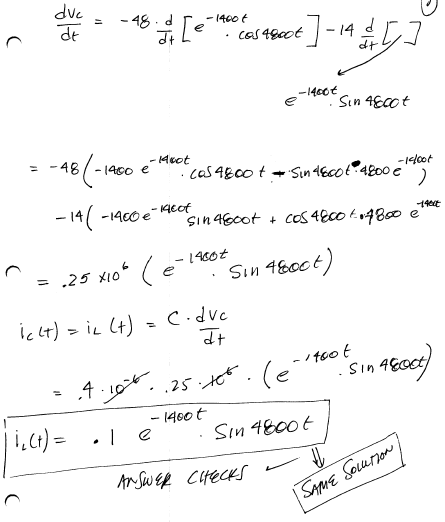 dVc/dt = -48 · d/dt [e^-1400t · cos4800t] - 14 d/dt [ ]
e^-1400t · Sin 4800t
= -48(-1400 e^-1400t · cos 4800 t - Sin 4800t · 4800 e^-1400t)
-14(-1400e^-1400t sin 4800t + cos 4800 t · 4800 e^-1400t
= .25 x10^6 (e^-1400t · Sin 4800t)
ic(t) = iL(t) = C · dVc/dt
= .4 · 10^-6 · .25 · 10^6 · (e^-1400t · Sin 4800t)
iL(t) = .1 e^-1400t · Sin 4800t
ANSWER CHECKS
SAME SOLUTION